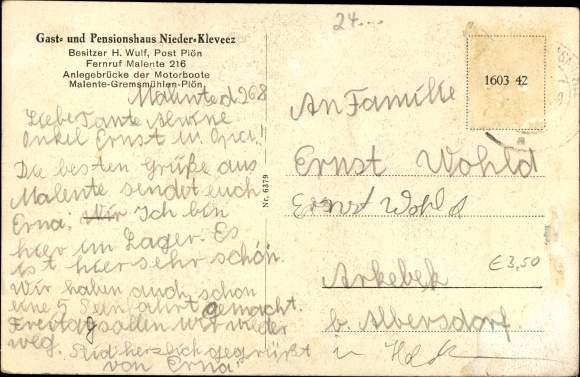 Gast- und Pensionshaus Nieder-Kleveez
Besitzer H. Wulf, Post Plön
Fernruf Malente 216
Anlegebrücke der Motorboote
Malente-Gremsmühlen-Plön
Malente d 26.8
Liebe Tante Alwine
Onkel Ernst u Opa!!
Die besten Grüße aus
Malente sendet euch
Erna. Wir Ich bin
hier im Lager. Es
ist hier sehr schön.
Wir haben auch schon
eine 5 Seenfahrt gemacht.
Freitag sollen wir wieder
weg. Seid herzlich gegrüßt
von Erna.
Nr. 6379
24...
1603 42
An Familie
Ernst Wohld
Ernst Wohld
Arkebek
€ 3,50
b. Albersdorf
in